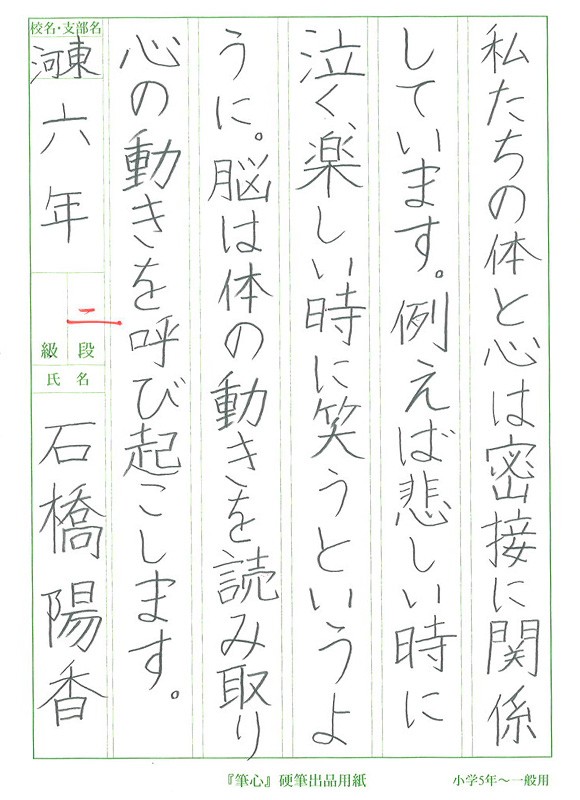 私たちの体と心は密接に関係
しています。例えば悲しい時に
泣く、楽しい時に笑うというよ
うに。脳は体の動きを読み取り
心の動きを呼び起こします。
校名・支部名
河東
六年
二
段
級
氏名
石橋陽香
『筆心』硬筆出品用紙
小学5年〜一般用